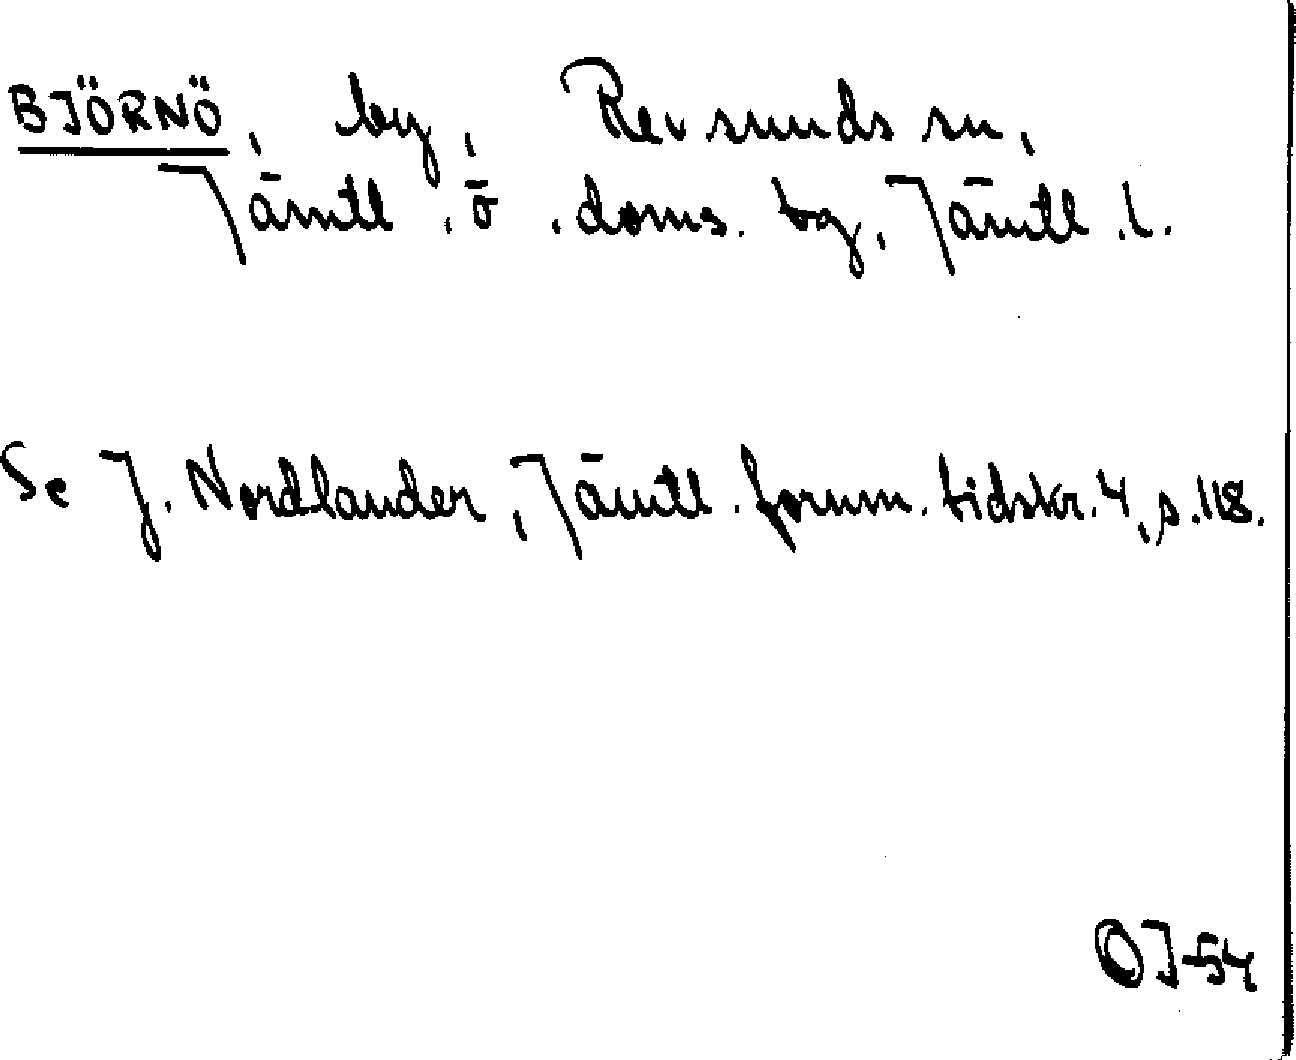 BJÖRNÖ, by, Revsunds sn,
Jämtl. ö. doms. tg, Jämtl. l.
Se J. Nordlander, Jämtl. fornm. tidskr. 4, s. 118.
OJ-54